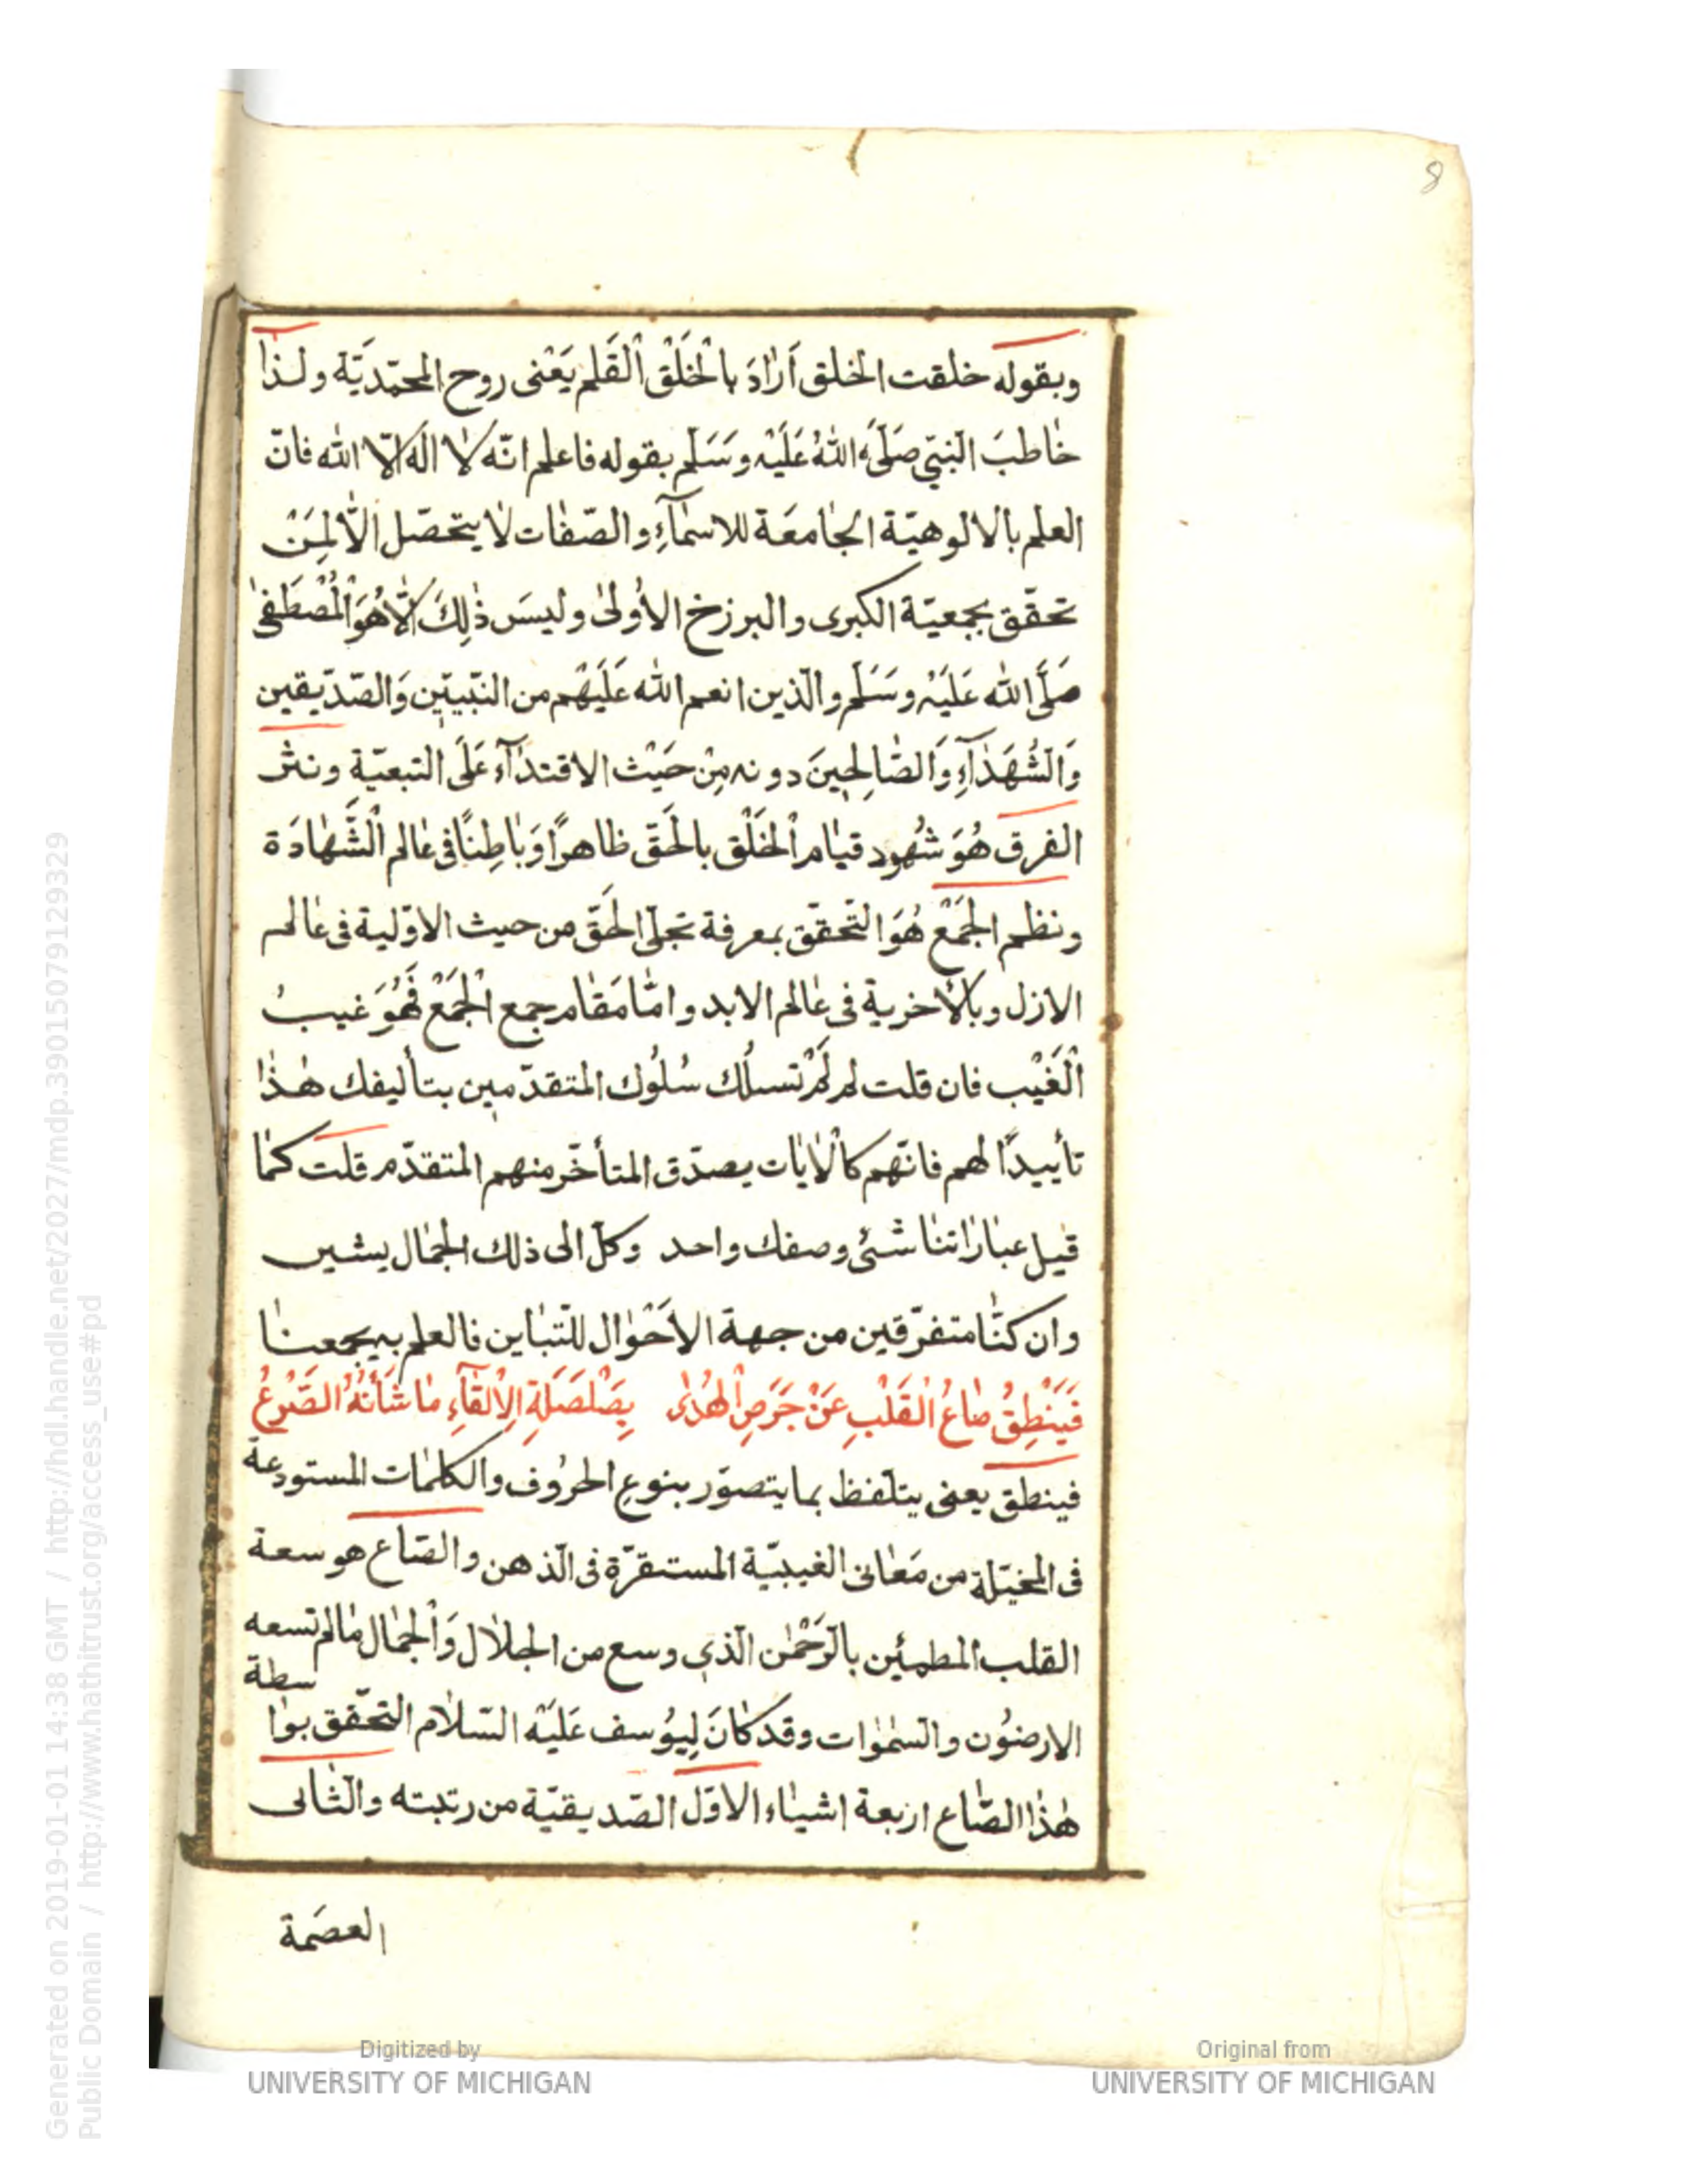 8
وبقوله خلقت الخلق اَرَادَ بالْخَلْق الْقَلم يَعْنى روح المحمّديّة ولذا
خاطبَ النّبيّ صَلَّى اللهُ عَلَيْهِ وَسَلَّم بقوله فاعلم انّه لا اله الّا الله فانّ
العلم بالالوهيّة الجامعَة للاسمآءِ والصّفات لا يتحصّل الّا لِمَنْ
تحقّق بجمعيّة الكبرى والبرزخ الاُولى وليسَ ذلِكَ الّا هُوَ الْمُصْطَفى
صَلَّى الله عَلَيْهِ وسَلَّم والّذين انعم الله عَلَيْهم من النّبيّين وَالصّدّيقين
وَالشُّهَدَآءِ وَالصَّالِحِينَ دونه مِنْ حَيْث الاقتدآء عَلَى التبعيّة ونثر
الفرق هُوَ شُهود قيام الْخَلْق بالْحَقّ ظاهرًا وَبَاطِنًا فى عالم الشَّهادَة
ونظم الجَمْع هُوَ التّحقّق بمعرفة تجلّى الْحَقّ من حيث الاوّلية فى عالم
الازل وبالأخرية فى عالم الابد وامّا مَقَام جمع الْجَمْع فَهُوَ غيبُ
الْغَيْب فان قلت لم لَمْ تسلُك سُلُوك المتقدّمين بتأليفك هذا
تأييدًا لهم فانّهم كالْآيات يصدّق المتأخّر منهم المتقدّم قلت كما
قيل عباراتنا شتّى وصفك واحد وكلّ الى ذلك الجمال يشير
وان كنّا متفرّقين من جهة الاَحْوال للتّباين فالعلم به يجمعنا
فَيَنْطِقُ صَاعُ الْقَلْبِ عَنْ جَرَصِ الْهُدَى بِصَلْصَلَةِ الِالْقَآءِ مَا شَأْنُهُ الصَّرْعُ
فينطق يعنى يتلّفظ بما يتصوّر بنوعِ الحرُوف والكلمات المستودعة
فى المخيّلة من مَعَانى الغيبيّة المستقرّة فى الّذهن والصّاع هو سعة
القلب المطمئين بالرَّحْمن الّذي وسع من الجلال وَالْجمال مالم تسعه
الارضوُن والسّموَات وقد كانَ لِيوُسف عَلَيْهِ السّلام التحّقق بواسطة
هذا الصّاع اربعة اشياء الاوّل الصّديقيّة من رتبته والثّانى
العصَمة
Generated on 2019-01-01 14:38 GMT / http://hdl.handle.net/2027/mdp.39015079129329
Public Domain / http://www.hathitrust.org/access_use#pd
Digitized by
UNIVERSITY OF MICHIGAN
Original from
UNIVERSITY OF MICHIGAN